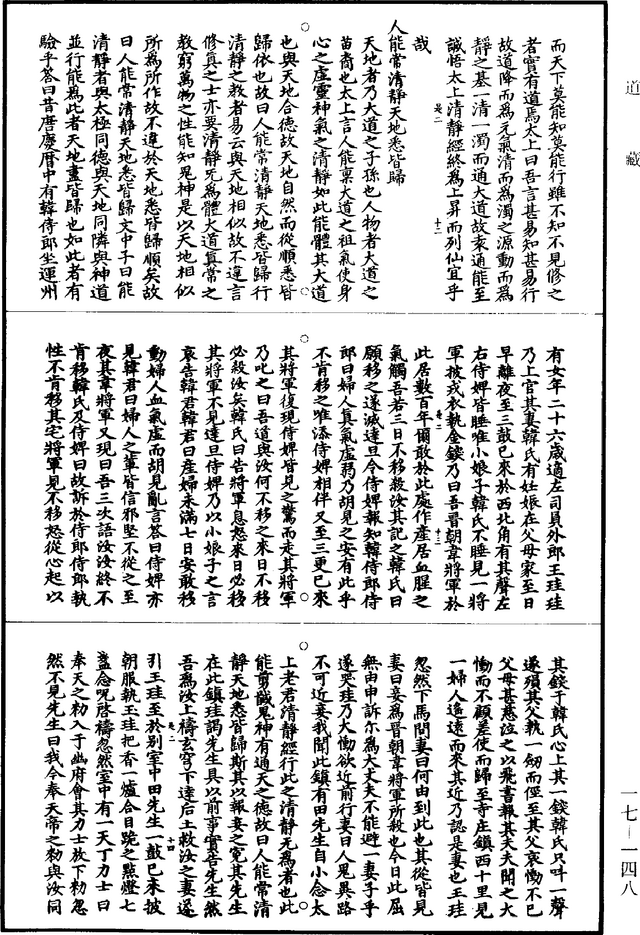 道藏
而天下莫能知莫能行雖不知不見修之
者實有道焉太上曰吾言甚易知甚易行
故道降而爲元氣清而爲濁之源動而爲
靜之基一清一濁而通大道故衆通能至
誠悟太上清靜經終爲上昇而列仙宜乎
哉
人能常清靜天地悉皆歸
天地者乃大道之子孫也人物者大道之
苗裔也太上言人能稟大道之祖氣使身
心之虛靈神氣之清靜如此能體其大道
也與天地合德故天地自然而從順悉皆
歸依也故曰人能常清靜天地悉皆歸行
清靜之教者易云與天地相似故不違言
修真之士亦要清靜旡爲體大道真常之
教窮萬物之性能知鬼神是以天地相似
所爲所作故不違於天地悉皆歸順矣故
曰人能常清靜天地悉皆歸文中子曰能
清靜者與太極同德與天地同隣與神道
並行能爲此者天地盡皆歸也如此者有
驗乎答曰昔唐慶曆中有韓侍郎坐運州
有女年二十六歲適左司員外郎王珪珪
乃上官其妻韓氏有妊娠在父母家至日
早離夜至三鼓已來於西北角有其聲左
右侍婢皆睡唯小娘子韓氏不睡見一將
軍披戎衣執金鋑乃曰吾晉朝韋將軍於
此居數百年爾敢於此處作產居血腥之
氣觸吾若三日不移殺汝其記之韓氏曰
願移之遂滅達旦令侍婢報知韓侍郎侍
郎曰婦人真氣虛弱乃胡見之安有此乎
不肯移之唯添侍婢相伴又至三更已來
其將軍復現侍婢皆見之驚而走其將軍
乃叱之曰吾道與汝何不移之來日不移
必殺汝矣韓氏曰告將軍息怒來日必移
其將軍不見達旦侍婢乃以小娘子之言
哀告韓君韓君曰產婦未滿七日安敢移
動婦人血氣虛而胡見亂言答曰侍婢亦
見韓君曰婦人之輩皆信邪堅不從之至
夜其韋將軍又現曰吾三次語汝汝終不
肯移韓氏及侍婢曰故訴於侍郎侍郎執
性不肯移其宅將軍見不移怒從心起以
其鋑于韓氏心上其一鋑韓氏只叫一聲
遂殞其父執一劒而侄至其父哀慟不已
父母甚慈泣之以飛書報其夫夫聞之大
慟而不顧差使而歸至寺庄鎮西十里見
一婦人遙遠而來其近乃認是妻也王珪
忽然下馬問妻曰何由到此也其從皆見
妻曰妾爲晉朝韋將軍所殺也今日此屈
無由申訴尔爲大丈夫不能避一妻子乎
遂哭珪乃大慟欲近前行妻曰人鬼異路
不可近妾我聞此鎮有田先生自小念太
上老君清靜經行此之清靜旡爲者也此
能剪截鬼神有通天之德故曰人能常清
靜天地悉皆歸斯其以報妾之冤其先生
在此鎮珪謁先生具以前事實告先生然
吾爲汝上禱玄穹下達后土救汝之妻遂
引王珪至於別室中田先生一鼓已來披
朝服執玉珪把香一爐合目跪之點燈七
盞念呪啓禱忽然室中有一天丁力士曰
奉天之勑入于幽府會其力士放下勑忽
然不見先生曰我今奉天帝之勑與汝同
一七—一四八